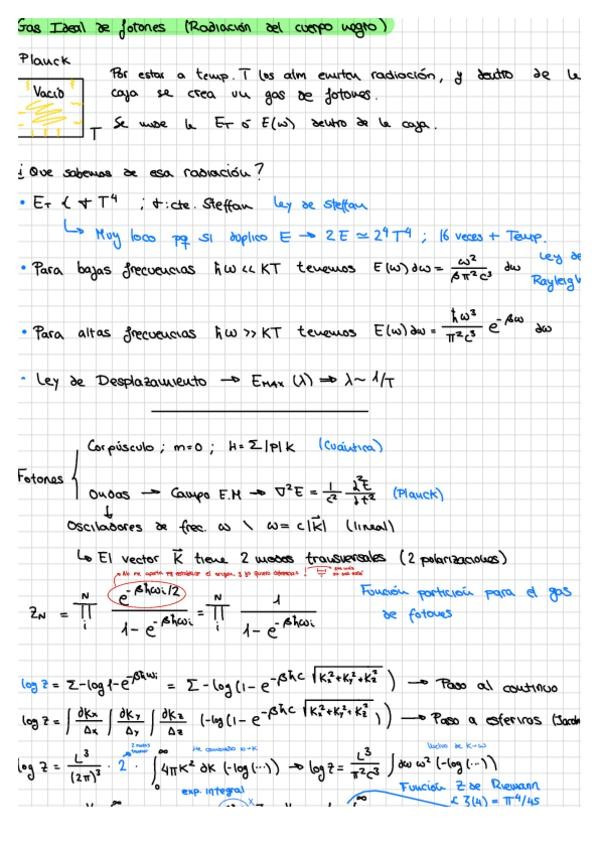 Gas Ideal de fotones (Radiación del cuerpo negro)
Planck
Vacío
T
Por estar a temp. T los atm emiten radiación, y dentro de la
caja se crea un gas de fotones.
Se mide la E_T ó E(ω) dentro de la caja.
¿Que sabemos de esa radiación?
• E_T ∝ σ T⁴ ; σ: cte. Steffan Ley de Steffan
↳ Muy loco pq si duplico E → 2E ≃ 2⁴T⁴ ; 16 veces + Temp.
• Para bajas frecuencias ħω << KT tenemos E(ω)dω = ω²/βπ²c³ dω Ley de
Rayleigh
• Para altas frecuencias ħω >> KT tenemos E(ω)dω = ħω³/π²c³ e^-βω dω
• Ley de Desplazamiento → E_MAX (λ) ⇒ λ ~ 1/T
Corpúsculo ; m=0 ; H = Σ|P|K (Cuántica)
Fotones
Ondas → Campo E.M → ∇²E = 1/c² ∂²E/∂t² (Planck)
↓
Osciladores de frec. ω \ ω = c|K⃗| (lineal)
↳ El vector K⃗ tiene 2 modos transversales (2 polarizaciones)
Z_N = ∏_i^N e^-βħωi/2 / 1 - e^-βħωi = ∏_i^N 1 / 1 - e^-βħωi
Función partición para el gas
de fotones
log Z = Σ -log 1 - e^-βħωi = Σ -log(1 - e^-βħc √Kx²+Ky²+Kz²) → Paso al continuo
log Z = ∫ dKx/Δx ∫ dKy/Δy ∫ dKz/Δz (-log(1 - e^-βħc √Kx²+Ky²+Kz²)) → Paso a esféricas (Jacob
2 modos
log Z = L³/(2π)³ · 2 · ∫_0^∞ 4πK² dK (-log(...)) → log Z = L³/π²c³ ∫ dω ω² (-log(...))
exp. integral
Función Z de Riemann
ζ(4) = π⁴/45